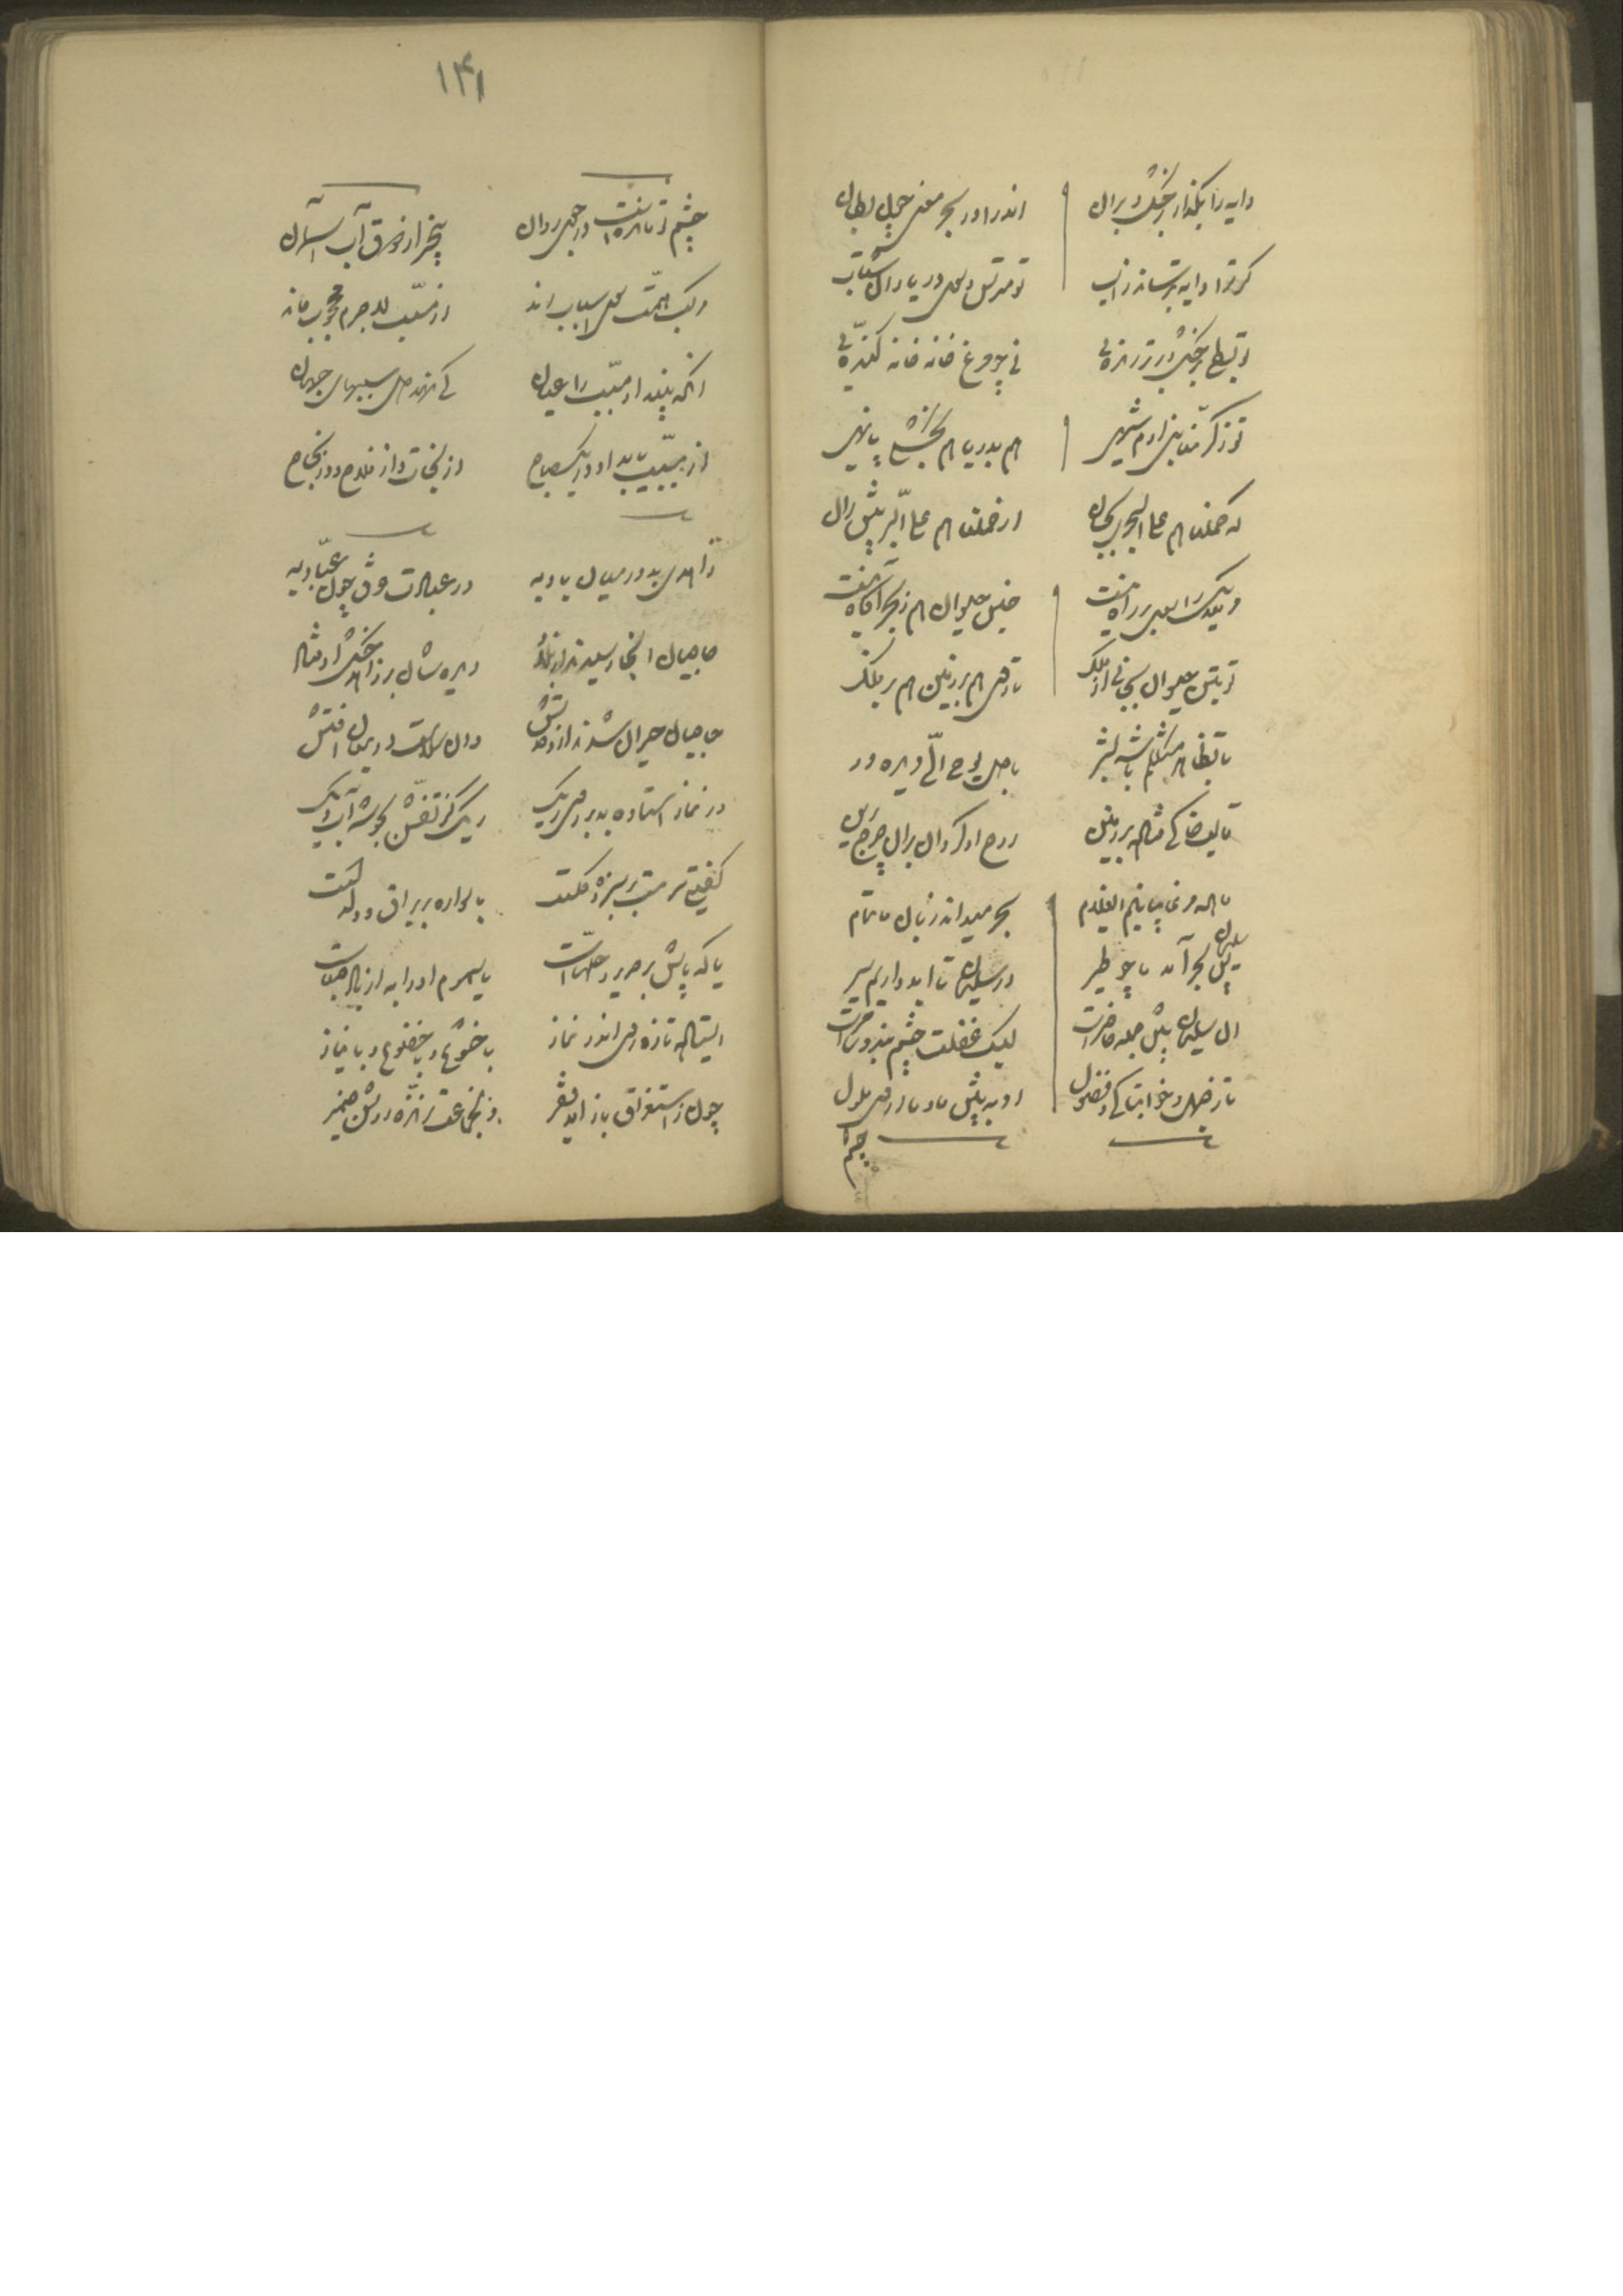 دایه را بگذار بر خشک و بران
اندر آ در بحر معنی چون بطان
گر ترا دایه بترساند ز آب
تو مترس و سوی دریا ران شتاب
تو بطی بر خشک و بر تر زنده‌ای
نی چو مرغ خانه خانه کنده‌ای
تو ز کرمنا بنی آدم شهی
هم بدریا هم بخشکی پا نهی
که حملناهم علی البحر بجان
از حملناهم علی البر پیش ران
مر ملایک را سوی بر راه نیست
جنس حیوان هم ز بحر آگاه نیست
تو بتن حیوان بجانی از ملک
تا روی هم بر زمین هم بر فلک
تا بظاهر مثلکم باشد بشر
با دل یوحی الی دیده ور
قالب خاکی فتاده بر زمین
روح او گردان بر آن چرخ برین
ما همه مرغابیانیم ای غلام
بحر میداند زبان ما تمام
پس سلیمان بحر آمد ما چو طیر
در سلیمان تا ابد داریم سیر
آن سلیمان پیش جمله حاضرست
لیک غفلت چشم بند و ساحرست
تا ز جهل و خوابناکی و فضول
او به پیش ما و ما از وی ملول
چشم او
۱۴۱
چشم او ماندست در جوی روان
بیخبر از ذوق آب آسمان
مرکب همت سوی اسباب راند
از مسبب لاجرم محجوب ماند
آنکه بیند او مسبب را عیان
کی نهد دل بر سببهای جهان
از مسبب یابد او در یک صباح
از نجات و از فلاح و از نجاح
زاهدی بد در میان بادیه
در عبادت غرق چون عبادیه
حاجیان آنجا رسیدند از بلاد
دیده شان بر زاهد خشک اوفتاد
حاجیان حیران شدند از وحدتش
وان سلامت در میان آفتش
در نماز استاده بد بر روی ریک
ریک کز تفش بجوشد آب دیک
گفتیی سرمست در سبزه و گلست
یا سواره بر براق و دلدلست
یا که پایش بر حریر و حله‌هاست
یا سموم او را به از باد صباست
ایستاده تازه روی اندر نماز
با خشوع و با خضوع و با نیاز
چون ز استغراق باز آمد فقیر
زان جماعت زنده‌ای روشن ضمیر